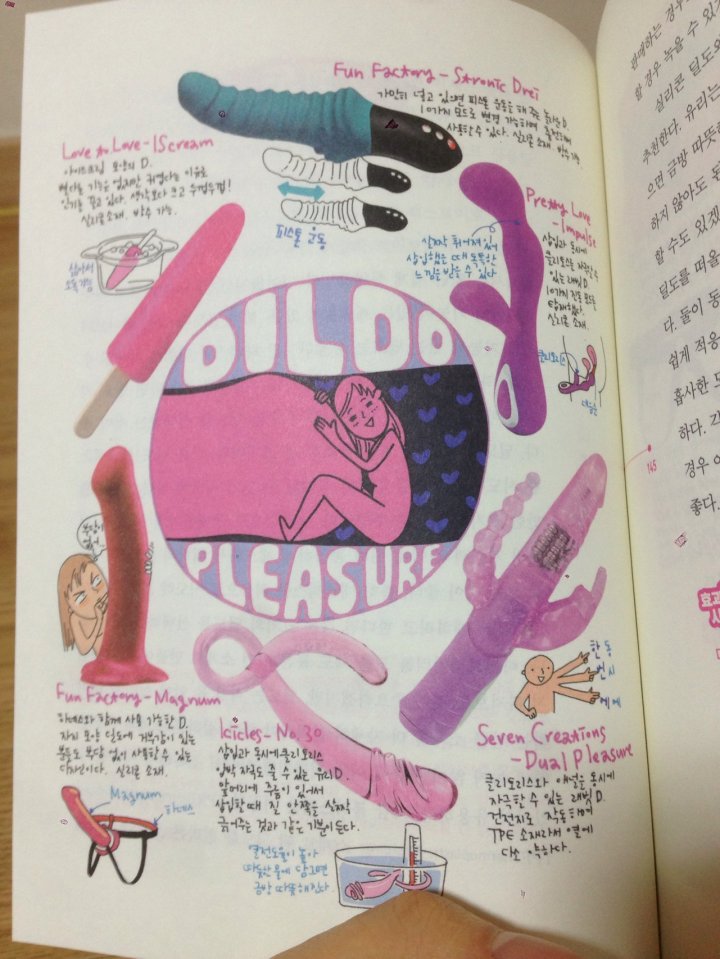 Fun Factory - Stronic Drei
가만히 넣고 있으면 피스톤 운동을 해 주는 놀라운 D.
10가지 모드로 변경 가능하며 충전하여
사용할 수 있다. 실리콘 소재. 방수 가능
피스톤 운동
Love to Love - IScream
아이스크림 모양의 D.
별다른 기능은 없지만 귀엽다는 이유로
인기를 끌고 있다. 생각보다 크고 우껍우껍!
실리콘 소재. 방수 가능.
삶아서
소독 가능
Pretty Love
- Impulse
삽입과 동시에
클리토리스를 자극할 수
있는 래빗 D.
10가지 진동 모드를
탑재했다.
실리콘 소재.
살짝 튀어나와 있어
삽입했을 때 독특한
느낌을 받을 수 있다
클리토리스
DILDO
PLEASURE
부담이
없어
Fun Factory - Magnum
하네스와 함께 사용 가능한 D.
자지 모양 딜도에 거부감이 있는
분들도 부담 없이 사용할 수 있는
디자인이다. 실리콘 소재.
Magnum
하네스
Icicles - No. 30
삽입과 동시에 클리토리스
압박 자극도 줄 수 있는 유리 D.
앞머리에 주름이 있어서
삽입할 때 질 안쪽을 살짝
긁어주는 것과 같은 기분이 든다.
열전도율이 높아
따뜻한 물에 담그면
금방 따뜻해진다.
Seven Creations
- Dual Pleasure
클리토리스와 애널을 동시에
자극할 수 있는 래빗 D.
건전지로 작동하며
TPE 소재라서 열에
다소 약하다.
한 동
번 시
에 에
145
판매하는 경우
할 경우 녹을 수 있
실리콘 딜도와
추천한다. 유리는
으면 금방 따뜻
하지 않아도 된
할 수도 있겠
딜도를 떠올
다. 둘이 동
쉽게 적응
흡사한 도
하다.
경우
좋다.
효과